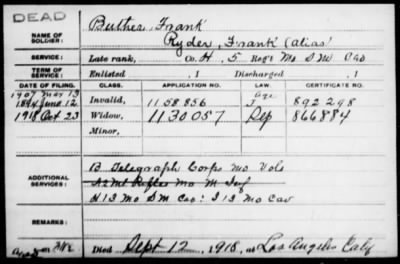 DEAD
NAME OF SOLDIER: Buther, Frank
Ryder, Frank (alias)
SERVICE: Late rank, Co. H, 5 Reg't Mo S M Cav
TERM OF SERVICE: Enlisted , 1 Discharged , 1
DATE OF FILING. CLASS. APPLICATION NO. LAW. CERTIFICATE NO.
1907 Mar 13 Age
1894 June 12 Invalid, 1158856 892298
1918 Oct 23 Widow, 1130057 Dep 866884
Minor,
ADDITIONAL SERVICES: B Telegraph Corps Mo Vols
Mo M Inf
H 13 Mo S M Cav: I 13 Mo Cav
REMARKS:
Died Sept 12, 1918, at Los Angeles Calif